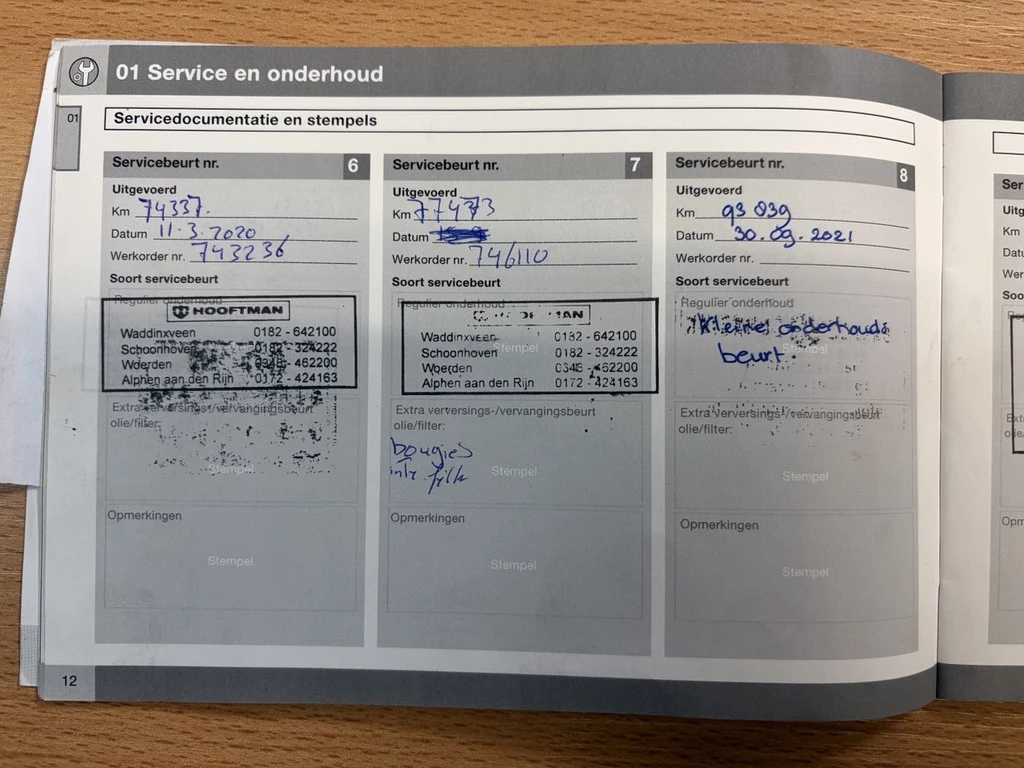 01 Service en onderhoud
01
Servicedocumentatie en stempels
Servicebeurt nr. 6
Uitgevoerd
Km 74337.
Datum 11-3-2020
Werkorder nr. 743236
Soort servicebeurt
Regulier onderhoud
HOOFTMAN
Waddinxveen 0182 - 642100
Schoonhoven 0182 - 324222
Woerden 0348 - 462200
Alphen aan den Rijn 0172 - 424163
Extra verversings-/vervangingsbeurt
olie/filter:
Stempel
Opmerkingen
Stempel
Servicebeurt nr. 7
Uitgevoerd
Km 77473
Datum
Werkorder nr. 746110
Soort servicebeurt
Regulier onderhoud
Waddinxveen 0182 - 642100
Stempel
Schoonhoven 0182 - 324222
Woerden 0348 - 462200
Alphen aan den Rijn 0172 - 424163
Extra verversings-/vervangingsbeurt
olie/filter:
bougies
Stempel
Opmerkingen
Stempel
Servicebeurt nr. 8
Uitgevoerd
Km 93 839
Datum 30.09.2021
Werkorder nr.
Soort servicebeurt
Regulier onderhoud
Kleine onderhouds
beurt.
Extra verversings-/vervangingsbeurt
olie/filter:
Stempel
Opmerkingen
Stempel
12
Ser
Uitg
Km
Datu
Werk
Soo
Extr
olie/
Opm